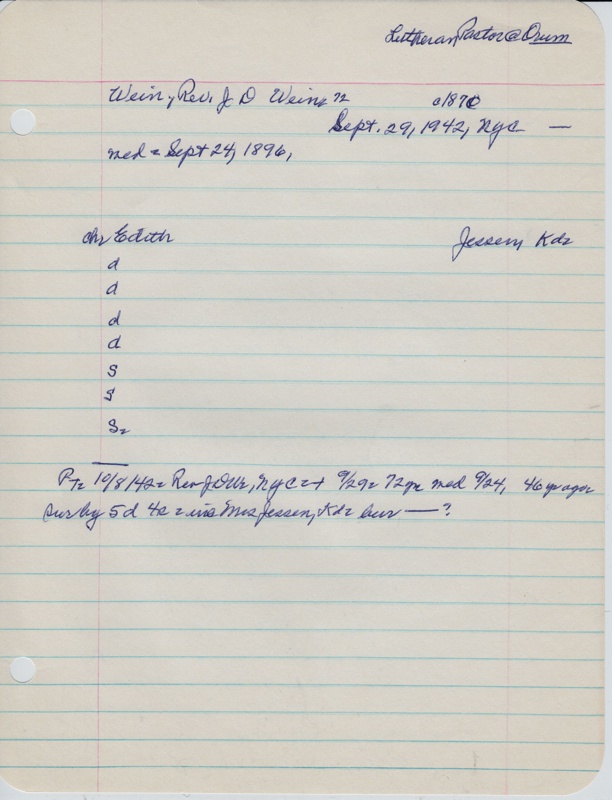 Lutheran Pastor @ Orum
Wein, Rev. J D Wein, 72 c1870
Sept. 29, 1942, NYC —
med = Sept 24, 1896,
ch, Edith Jessen, Kd=
d
d
d
d
s
s
s=
PT= 10/8/42= Rev J D W, NYC = + 9/29= 72yr med 9/24, 46 yr ago
sur by 5d 4s = Mrs Jessen, Kd= bur — ?